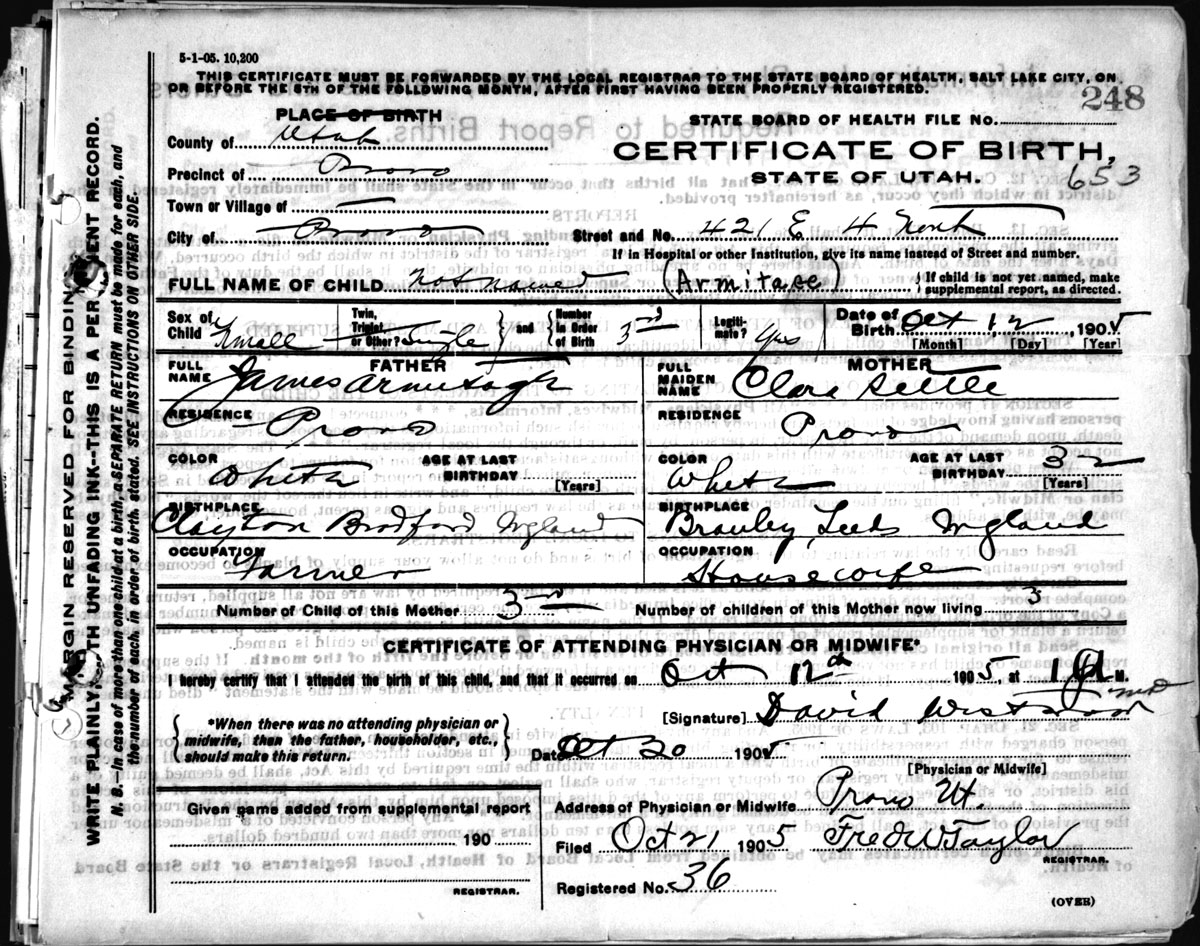 5-1-05. 10,200
THIS CERTIFICATE MUST BE FORWARDED BY THE LOCAL REGISTRAR TO THE STATE BOARD OF HEALTH, SALT LAKE CITY, ON
OR BEFORE THE 5TH OF THE FOLLOWING MONTH, AFTER FIRST HAVING BEEN PROPERLY REGISTERED.
248
PLACE OF BIRTH
STATE BOARD OF HEALTH FILE No.
County of Utah
CERTIFICATE OF BIRTH,
Precinct of Provo
STATE OF UTAH.
653
Town or Village of
City of Provo Street and No. 421 E 4 North
If in Hospital or other Institution, give its name instead of Street and number.
FULL NAME OF CHILD not named (Armitage) {If child is not yet named, make supplemental report, as directed.
Sex of Child Female Twin, Triplet, or Other? Single } and { Number in Order of Birth 3rd Legiti-mate? Yes Date of Birth Oct 12, 1905
[Month] [Day] [Year]
FATHER MOTHER
FULL NAME James Armitage FULL MAIDEN NAME Clara Settle
RESIDENCE Provo RESIDENCE Provo
COLOR White AGE AT LAST BIRTHDAY [Years] COLOR White AGE AT LAST BIRTHDAY 32 [Years]
BIRTHPLACE Clayton Bradford England BIRTHPLACE Bramley, Leeds England
OCCUPATION Farmer OCCUPATION Housewife
Number of Child of this Mother 3rd Number of children of this Mother now living 3
CERTIFICATE OF ATTENDING PHYSICIAN OR MIDWIFE*
I hereby certify that I attended the birth of this child, and that it occurred on Oct 12th 1905, at 1 a M.
[Signature] David Westwood MD
{*When there was no attending physician or midwife, then the father, householder, etc., should make this return.}
Date Oct 20 1905
[Physician or Midwife]
Given name added from supplemental report
Address of Physician or Midwife Provo Ut.
190
Filed Oct 21 1905 Fred W Taylor
REGISTRAR.
Registered No. 36
REGISTRAR.
(OVER)
MARGIN RESERVED FOR BINDING
WRITE PLAINLY, WITH UNFADING INK--THIS IS A PERMANENT RECORD.
N. B.--In case of more than one child at a birth, a SEPARATE RETURN must be made for each, and
the number of each, in order of birth, stated. SEE INSTRUCTIONS ON OTHER SIDE.